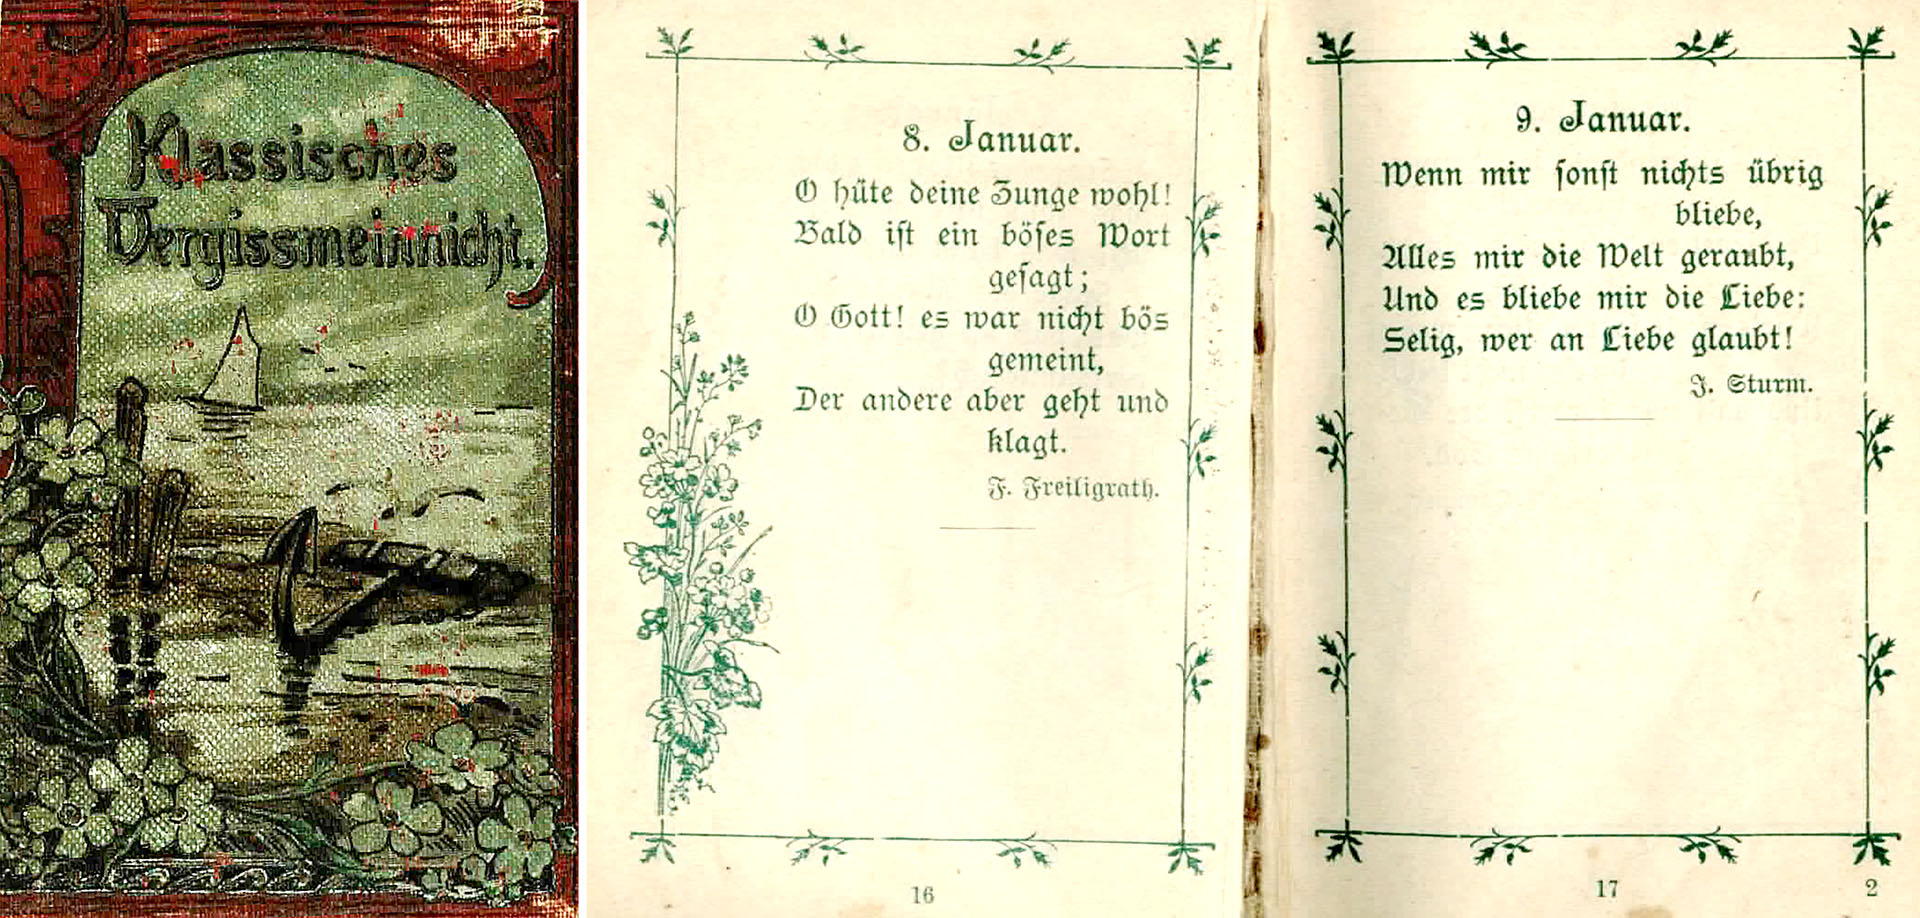 Klassisches
Vergissmeinnicht.
8. Januar.
O hüte deine Zunge wohl!
Bald ist ein böses Wort
gesagt;
O Gott! es war nicht bös
gemeint,
Der andere aber geht und
klagt.
F. Freiligrath.
16
9. Januar.
Wenn mir sonst nichts übrig
bliebe,
Alles mir die Welt geraubt,
Und es bliebe mir die Liebe:
Selig, wer an Liebe glaubt!
J. Sturm.
17
2